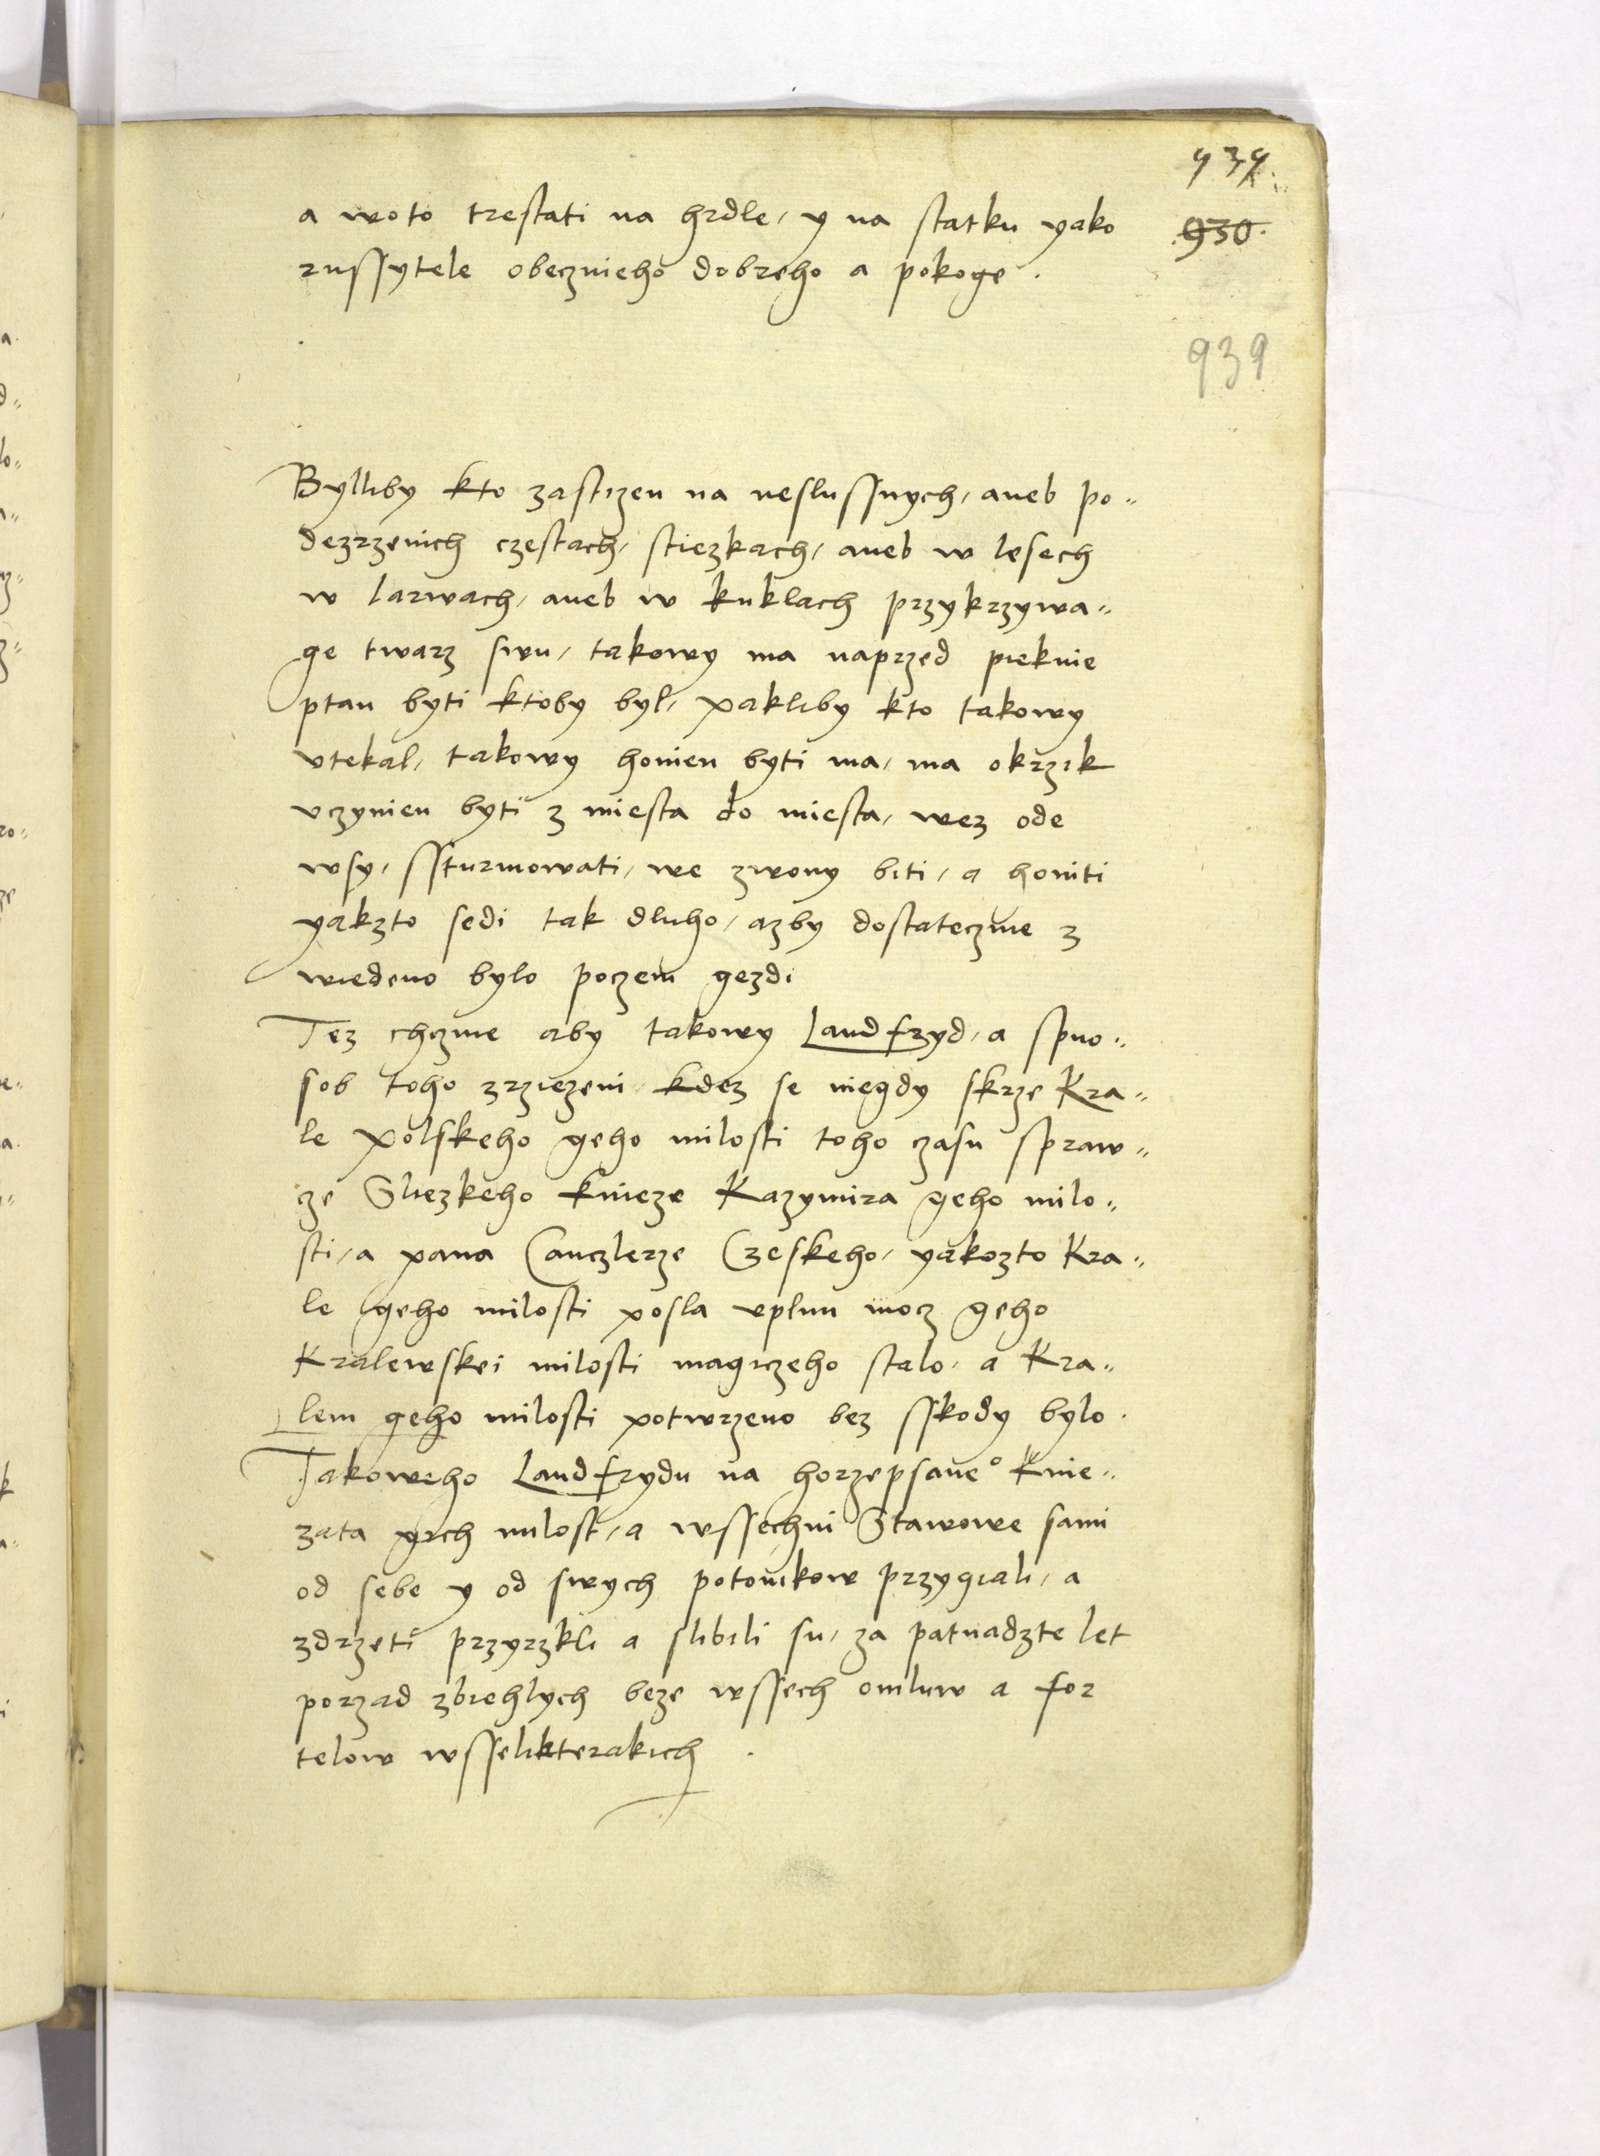 939.
a woto trestati na hrdle, y na statku yako
930.
russytele obecznieho dobreho a pokoge.
939
Bylliby kto zastizen na neslussnych, aneb po„
dezrzenich czestach, stiezkach, aneb w lesech
w larwach, aneb w kuklach przykrzywa„
ge twarz swu, takowy ma naprzed pieknie
ptan byti ktoby byl, pakliby kto takowy
vtekal, takowy honien byti ma, ma okrzik
vczynien byti z miesta do miesta, wez ode
wsy, ssturmowati, we zwony biti, a honiti
yakzto sedi tak dluho, azby dostateczne z
wiedeno bylo poczem gezdi
Tez chczme aby takowy Landfryd, a spuo„
sob toho zrziezeni, kdez se niegdy skrze Kra„
le Polskeho geho milosti toho czasu spraw„
cze Sliezkeho knieze Kazymira geho milo„
sti, a pana Canczlerze Czeskeho, yakozto Kra„
le geho milosti posla vplnu mocz geho
Kralewskei milosti magiczeho stalo, a Kra„
lem geho milosti potwrzeno bez sskody bylo.
Takoweho Landfrydu na horzepsane° Knie„
zata gich milost, a wssechni Stawowe sami
od sebe y od swych potomkow przygiali, a
zdrzeti przyrzkli a slibili su, za patnadzte let
porzad zbiehlych beze wssech omluw a for
telow wsselikterakich.